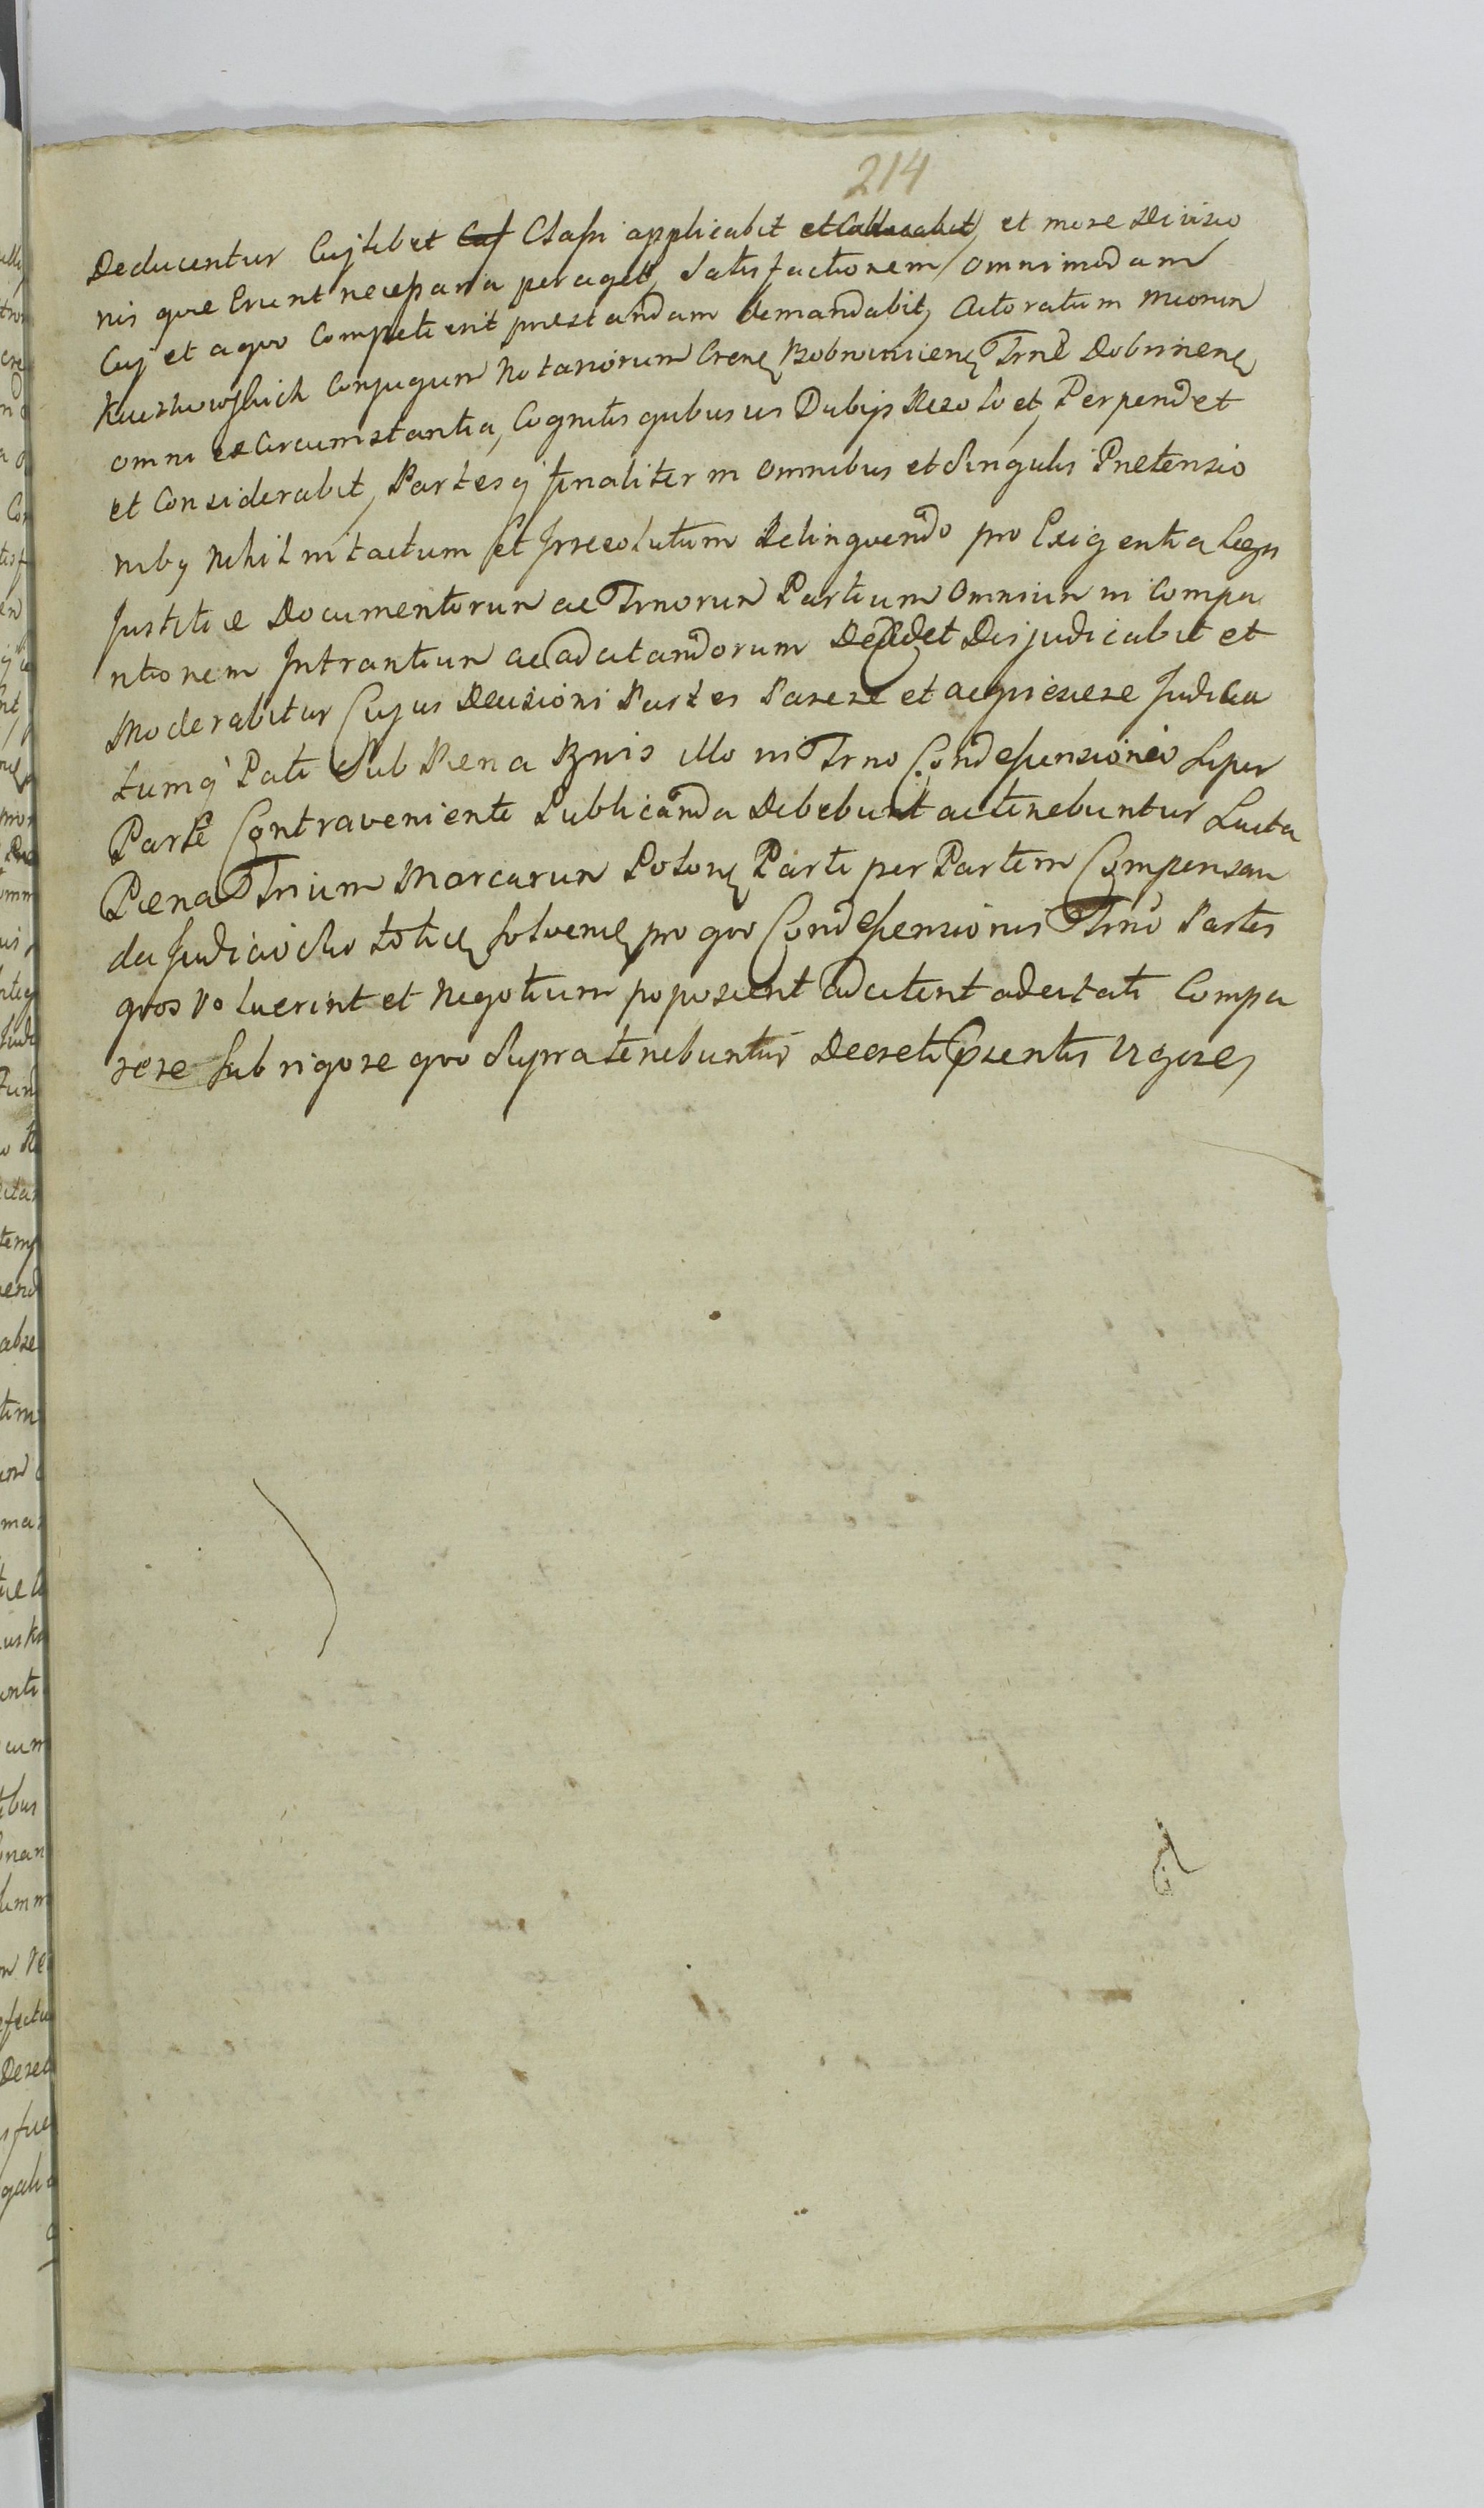 214
Deducentur Cujlibet Cuj Classi applicabit et Collocabit, et more Divisio
nis quæ Erunt necessaria peraget, Satisfactionem omnimodam
Cuj et a quo Competi erit præstandam demandabit, Actoratum
Conjugum Notariorum Dobrinen
omni ex Circumstantia, Cognitis Dubijs Rezolvet, Perpendet
et Considerabit, Partesq finaliter in omnibus et Singulis Prætensio
nibq Nihil intactum et Irrezolutum Relinquendo pro Exigentia Legis
Justitiæ Documentorum ac Trnorum Partium Omnium in Compa
ritionem Intrantium ac adcitandorum Decidet Disjudicabit et
Moderabitur Cujus Decisioni Partes Parere et acquiescere Judica
tumq Pati Sub Pæna Bnis illo in Trno Condescensionis Super
Parte Contraveniente Publicanda Debebunt ac tenebuntur Lucta
Pæna Trium Marcarum Polon Parti per Partem Compensan
da Judicio Suo toties Solven pro quo Condescensionis Trno Partes
quos Voluerint et Negotium poposcerit adcitent adcitati Compa
rere Sub rigore quo Supra tenebuntur Decreti Præsentis Vigore,